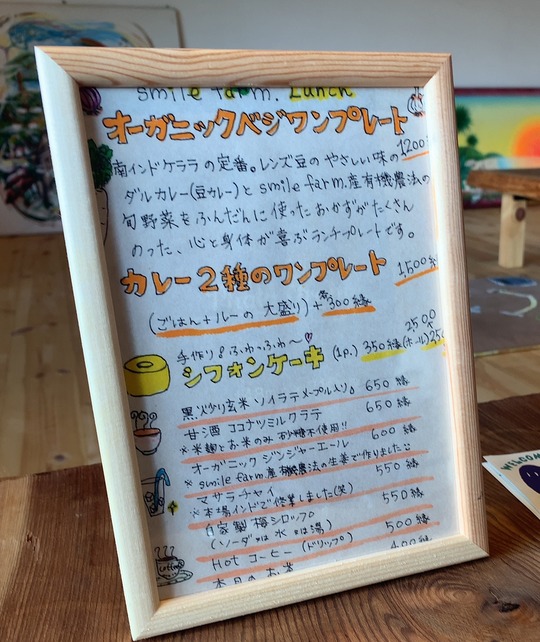 smile farm. Lunch
オーガニックベジワンプレート
1200
南インドケララの定番。レンズ豆のやさしい味の
ダルカレー(豆カレー)と smile farm.産有機農法の
旬野菜をふんだんに使ったおかずがたくさん
のった、心と身体が喜ぶランチプレートです。
カレー2種のワンプレート
1500縁
(ごはん+ルーの 大盛り)+300縁
手作り!ふわっふわ〜♡
シフォンケーキ (1p.) 350縁 (ホール)
2500
黒炒り玄米ソイラテメープル入り。 650縁
甘酒 ココナツミルクラテ 650縁
※米麹とお米のみ 砂糖不使用!!
オーガニック ジンジャーエール 600縁
※smile farm.産有機農法の生姜で作りました
マサラチャイ 550縁
※本場インドで修業しました(笑)
自家製 梅シロップ 550縁
(ソーダor水or湯)
Hot コーヒー (ドリップ) 500縁
本日のお茶 400縁
coffee
WELCOME